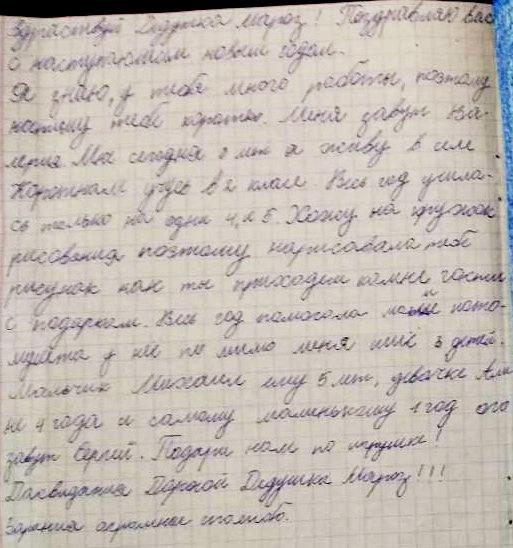 Здраствуй Дедушка Мароз! Поздравляю Вас
с наступаюшим новым годом.
Я знаю, у тебя много работы, поэтому
напишу тебе коротко. Меня завут Ва-
лерия. Мне сегодня 8 лет я живу в селе
учусь в 2 класе. Весь год училa-
сь только на одни 4, и 5. Хожу на кружок
рисования поэтому нарисовала тебе
рисунак как ты приходем комне гости
с подаркам. Весь год помогала маме пото-
мушта у неё по мимо меня ище 3 детей.
Мальчик Михаил ему 5 лет, девочке Али
не 4 года и самому маленькаму 1 год его
завут Сергей. Подари нам по игрушке!
Дасвидания Дорогой Дедушка Мароз!!!
Заранея огромное спасибо.